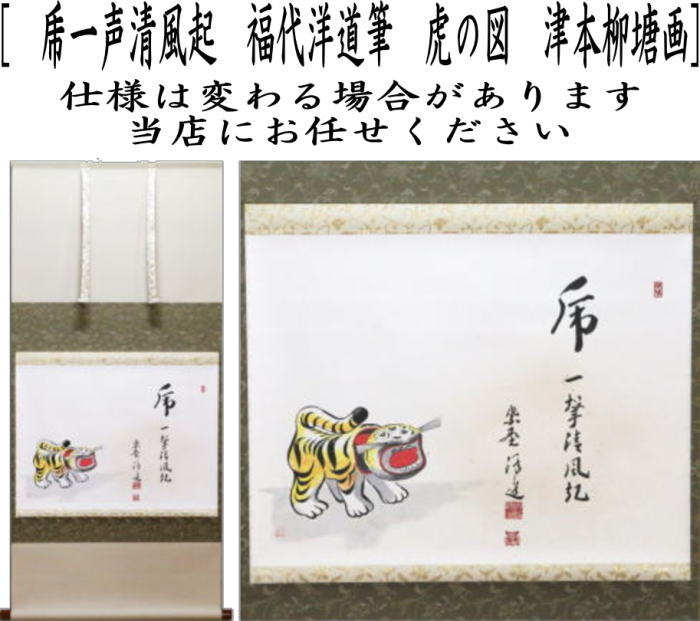 [　乕一声清風起　福代洋道筆　虎の図　津本柳塘画]
仕様は変わる場合があります
当店にお任せください
乕
一聲清風起
洋道
乕
一聲清風起
洋道